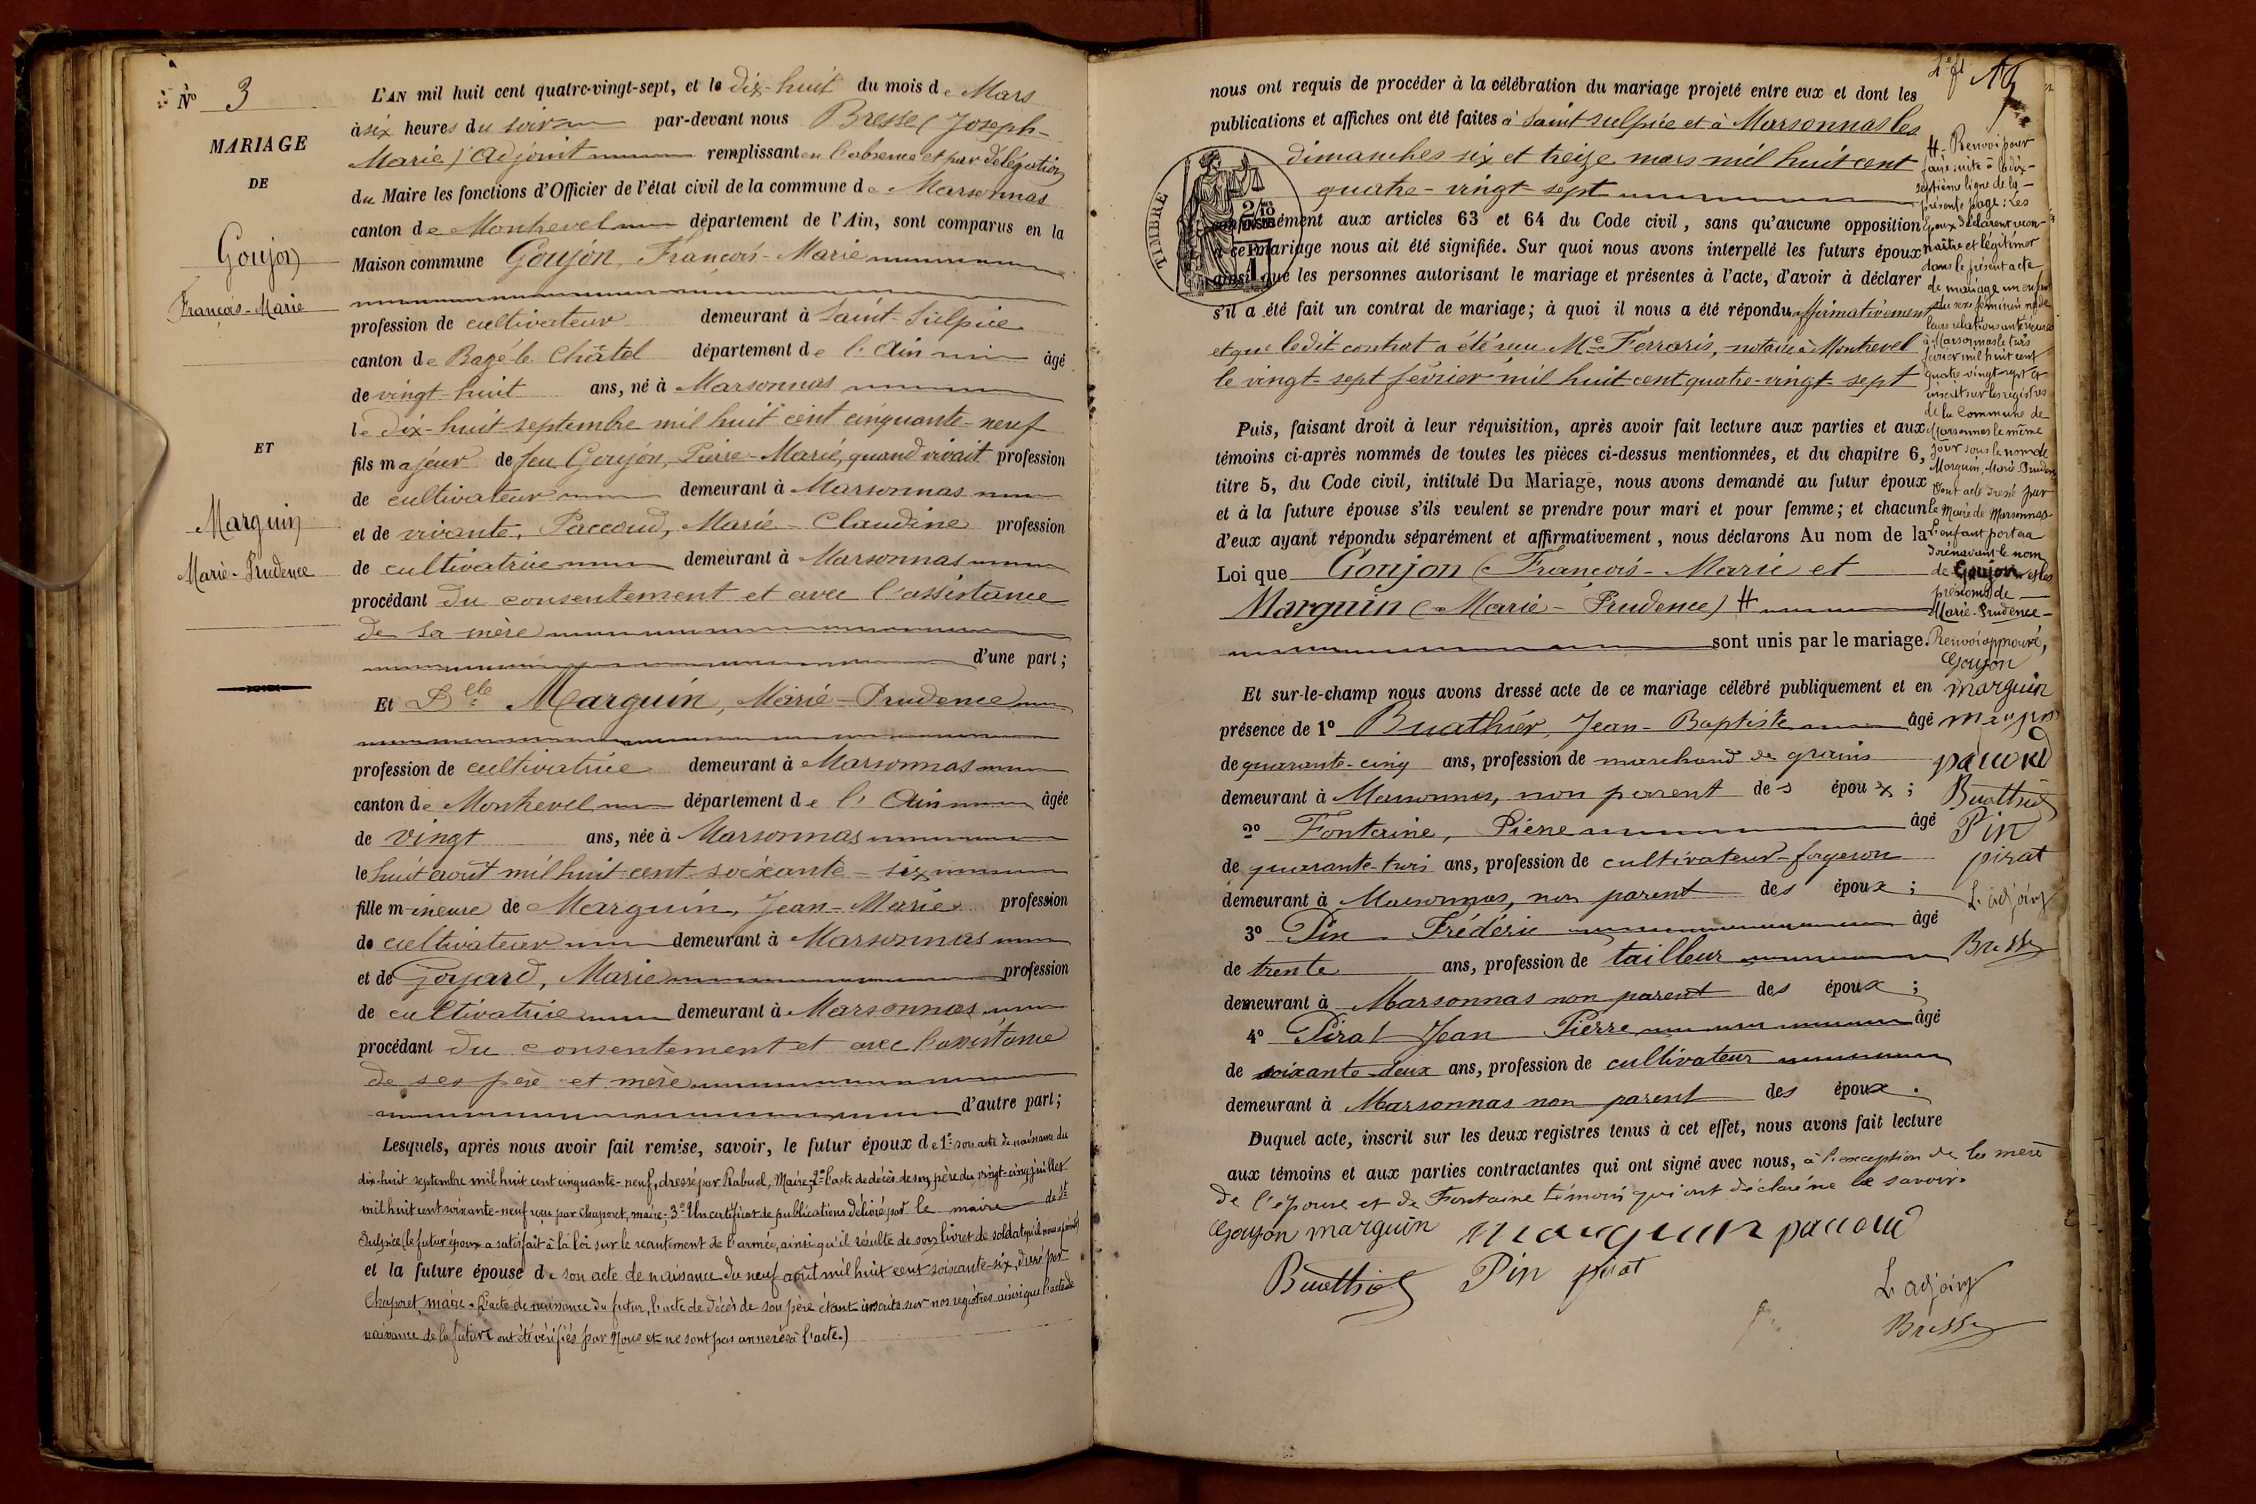 N° 3
MARIAGE
DE
Goujon
François-Marie
ET
Marguin
Marie-Prudence
L'AN mil huit cent quatre-vingt-sept, et le dix-huit du mois de Mars
à six heures du soir par-devant nous Bresse (Joseph-
Marie) Adjoint remplissant en l'absence et par délégation
du Maire les fonctions d'Officier de l'état civil de la commune de Marsonnas
canton de Montrevel département de l'Ain, sont comparus en la
Maison commune Goujon, François-Marie
profession de cultivateur demeurant à Saint-Sulpice
canton de Bagé-le-Châtel département de l'Ain âgé
de vingt-huit ans, né à Marsonnas
le dix-huit septembre mil huit cent cinquante-neuf
fils majeur de feu Goujon, Pierre-Marie, quand vivait profession
de cultivateur demeurant à Marsonnas
et de vivante, Paccoud, Marie-Claudine profession
de cultivatrice demeurant à Marsonnas
procédant du consentement et avec l'assistance
de sa mère
d'une part;
Et Dlle Marguin, Marie-Prudence
profession de cultivatrice demeurant à Marsonnas
canton de Montrevel département de l'Ain âgée
de vingt ans, née à Marsonnas
le huit août mil huit cent soixante-six
fille mineure de Marguin, Jean-Marie profession
de cultivateur demeurant à Marsonnas
et de Goyard, Marie profession
de cultivatrice demeurant à Marsonnas
procédant du consentement et avec l'assistance
de ses père et mère
d'autre part;
Lesquels, après nous avoir fait remise, savoir, le futur époux de 1° son acte de naissance du
dix-huit septembre mil huit cent cinquante-neuf, dressé par Rabuel, Maire; 2° l'acte de décès de son père du vingt-cinq juillet
mil huit cent soixante-neuf reçu par Chaporet, maire; 3° Un certificat de publications délivré par le maire de St
Sulpice (le futur époux a satisfait à la loi sur le recrutement de l'armée, ainsi qu'il résulte de son livret de soldat qu'il nous a
et la future épouse de son acte de naissance du neuf août mil huit cent soixante-six, dressé par
Chaporet, maire. (L'acte de naissance du futur, l'acte de décès de son père étant inscrits sur nos registres ainsi que l'acte de
naissance de la future ont été vérifiés par Nous et ne sont pas annexés à l'acte.)
nous ont requis de procéder à la célébration du mariage projeté entre eux et dont les
publications et affiches ont été faites à Saint Sulpice et à Marsonnas les
dimanches six et treize mars mil huit cent
quatre-vingt-sept
TIMBRE
2/10
conformément aux articles 63 et 64 du Code civil, sans qu'aucune opposition
à ce mariage nous ait été signifiée. Sur quoi nous avons interpellé les futurs époux
ainsi que les personnes autorisant le mariage et présentes à l'acte, d'avoir à déclarer
s'il a été fait un contrat de mariage; à quoi il nous a été répondu affirmativement
et que ledit contrat a été reçu Me Ferraris, notaire à Montrevel
le vingt-sept février mil huit cent quatre-vingt-sept
Puis, faisant droit à leur réquisition, après avoir fait lecture aux parties et aux
témoins ci-après nommés de toutes les pièces ci-dessus mentionnées, et du chapitre 6,
titre 5, du Code civil, intitulé Du Mariage, nous avons demandé au futur époux
et à la future épouse s'ils veulent se prendre pour mari et pour femme; et chacun
d'eux ayant répondu séparément et affirmativement, nous déclarons Au nom de la
Loi que Goujon (François-Marie et
Marguin (Marie-Prudence) #
sont unis par le mariage.
Et sur-le-champ nous avons dressé acte de ce mariage célébré publiquement et en
présence de 1° Buathier, Jean-Baptiste âgé
de quarante-cinq ans, profession de marchand de grains
demeurant à Marsonnas, non parent des époux;
2° Fontaine, Pierre âgé
de quarante-trois ans, profession de cultivateur-forgeron
demeurant à Marsonnas, non parent des époux;
3° Pin Frédéric âgé
de trente ans, profession de tailleur
demeurant à Marsonnas non parent des époux;
4° Pirat Jean Pierre âgé
de soixante-deux ans, profession de cultivateur
demeurant à Marsonnas non parent des époux.
Duquel acte, inscrit sur les deux registres tenus à cet effet, nous avons fait lecture
aux témoins et aux parties contractantes qui ont signé avec nous, à l'exception de la mère
de l'épouse et de Fontaine témoin qui ont déclaré ne le savoir.
Goujon marguin marguin paccoud
Buathier Pin pirat
L'adjoint
Bresse
# Renvoi pour
faire suite à la dix-
septième ligne de la
présente page: Les
époux déclarent recon-
naître et légitimer
dans le présent acte
de mariage un enfant
du sexe féminin né de
leurs relations antérieures
à Marsonnas le trois
février mil huit cent
quatre vingt-sept et
inscrit sur les registres
de la Commune de
Marsonnas le même
jour sous le nom de
Marguin, Marie Prudence
dont acte dressé par
le Maire de Marsonnas.
L'enfant portera
dorénavant le nom
de Goujon et les
prénoms de
Marie-Prudence-
Renvoi approuvé,
Goujon
marguin
marguin
paccoud
Buathier
Pin
pirat
L'adjoint
Bresse